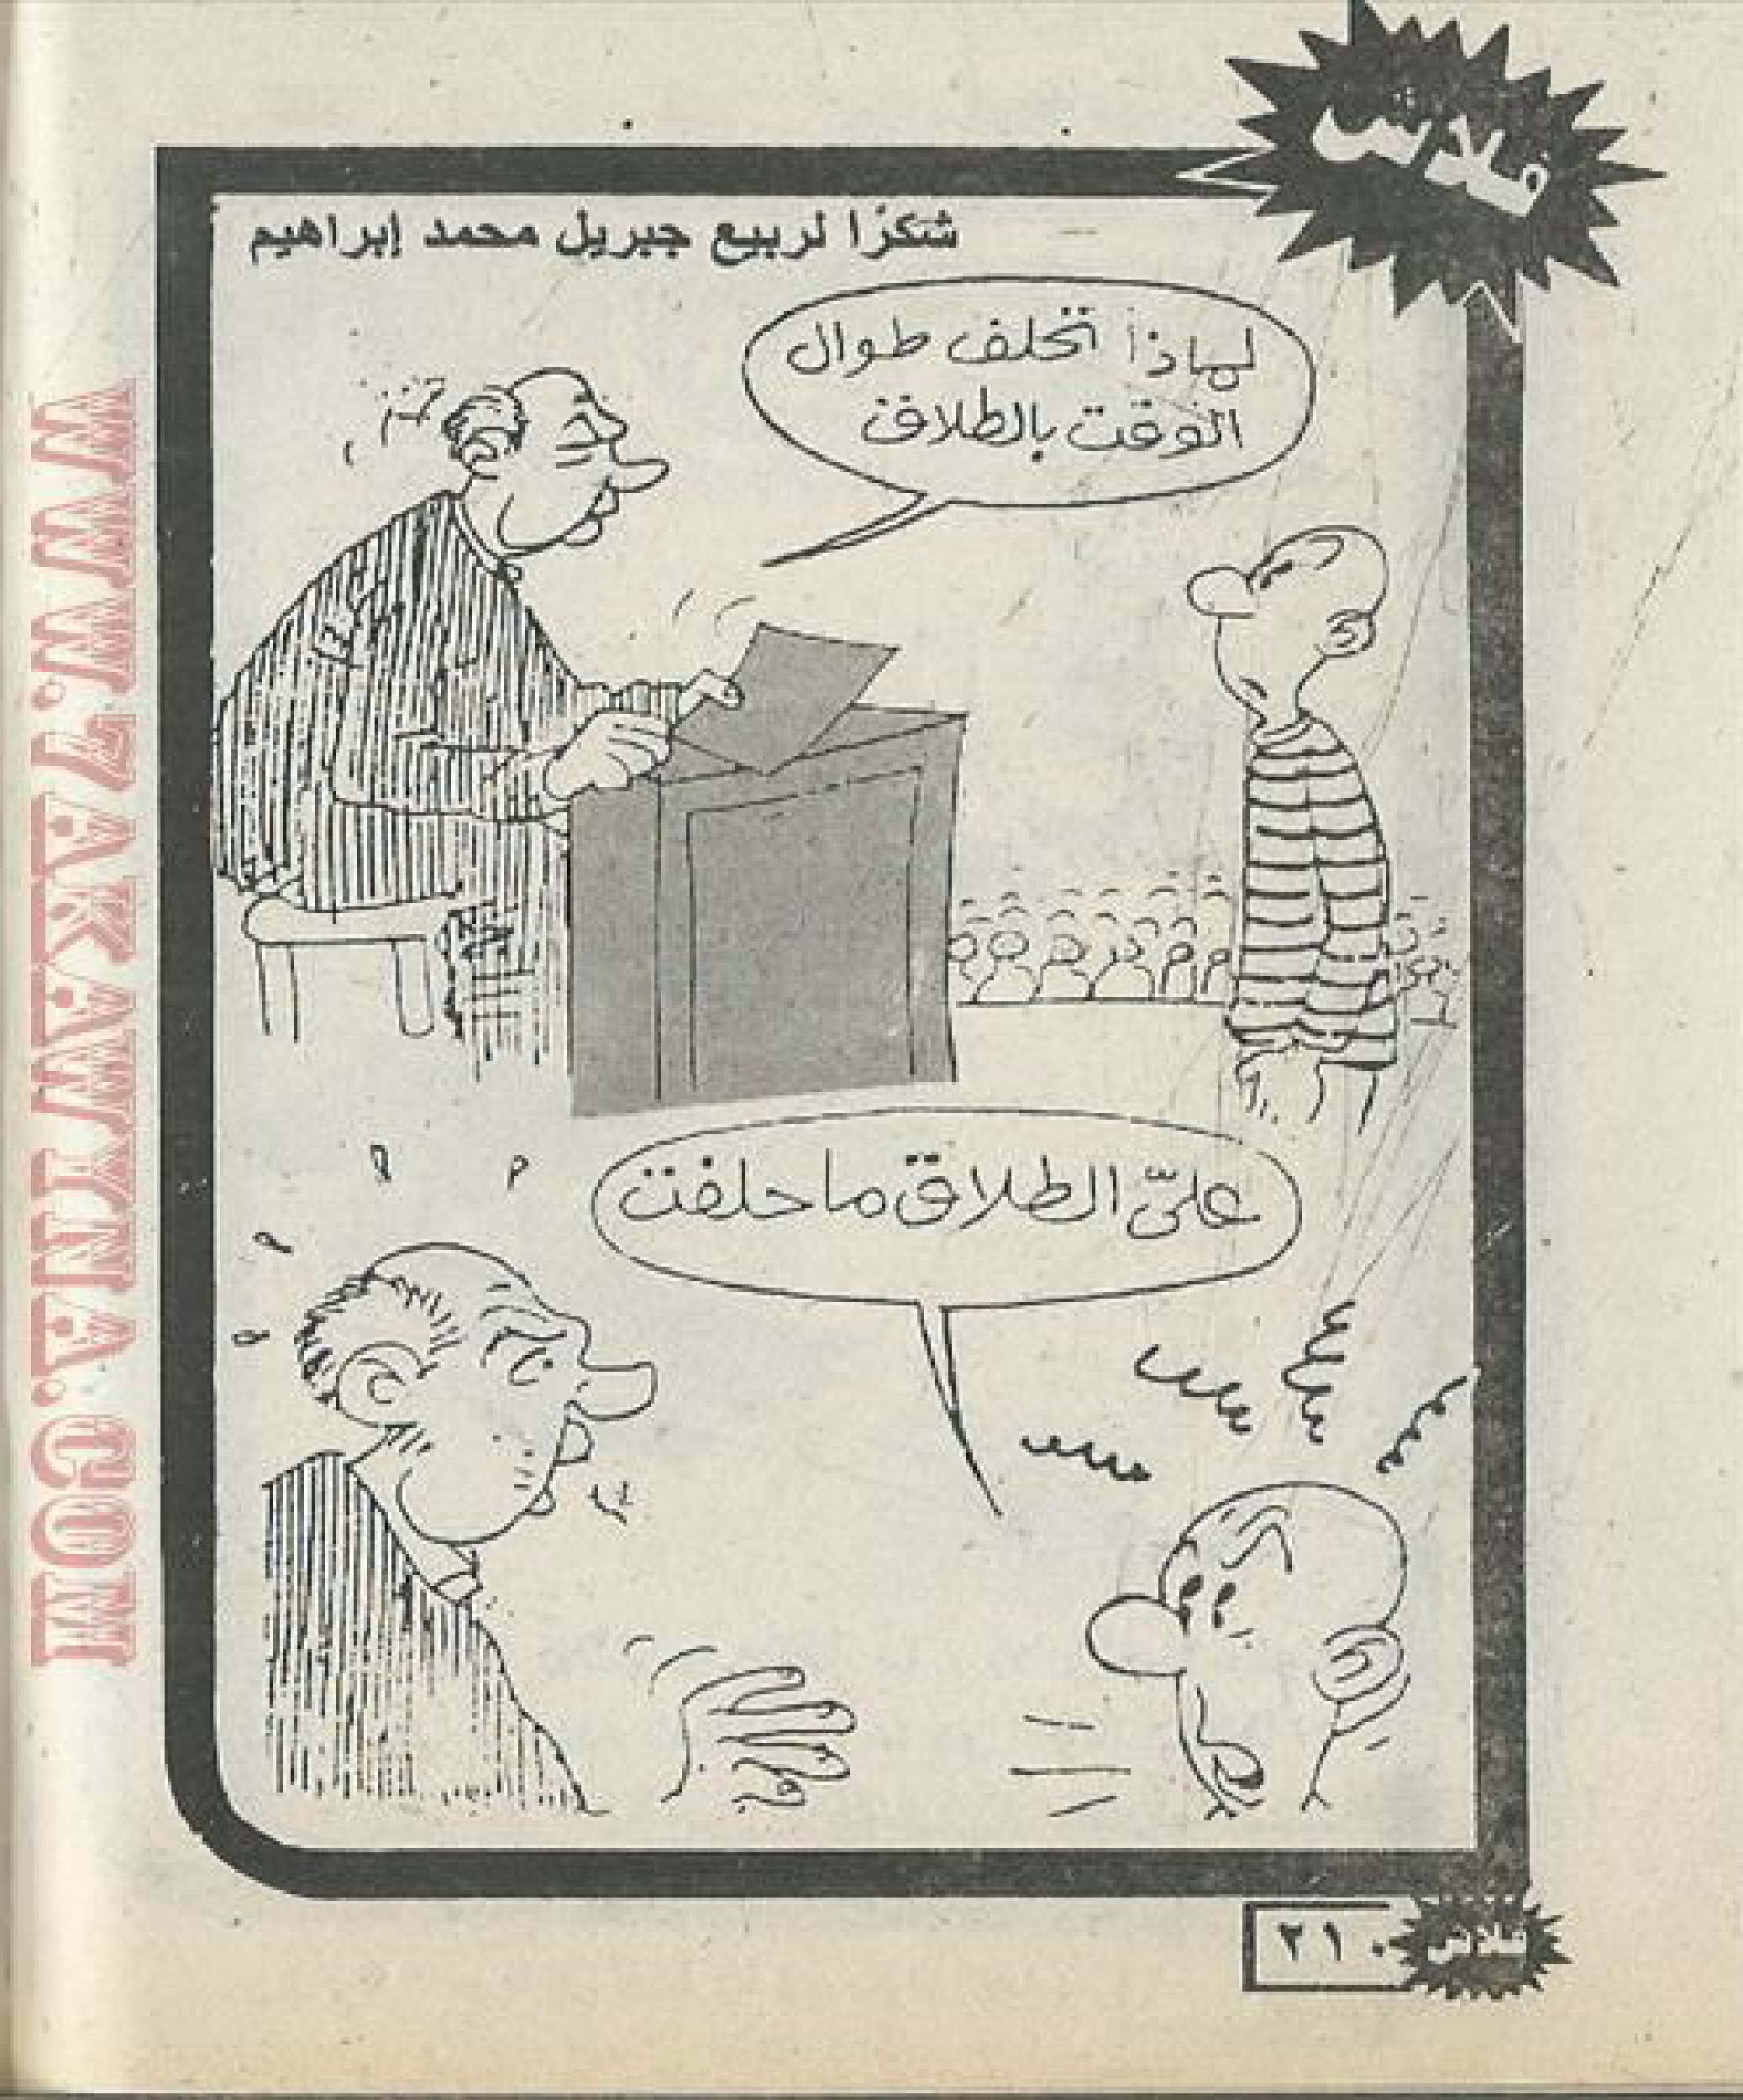 فلاش
شكرًا لربيع جبريل محمد إبراهيم
لماذا تحلف طوال
الوقت بالطلاق
عليّ الطلاق ما حلفت
WWW.7AKAWTNA.COM
٢١٠
فلاش